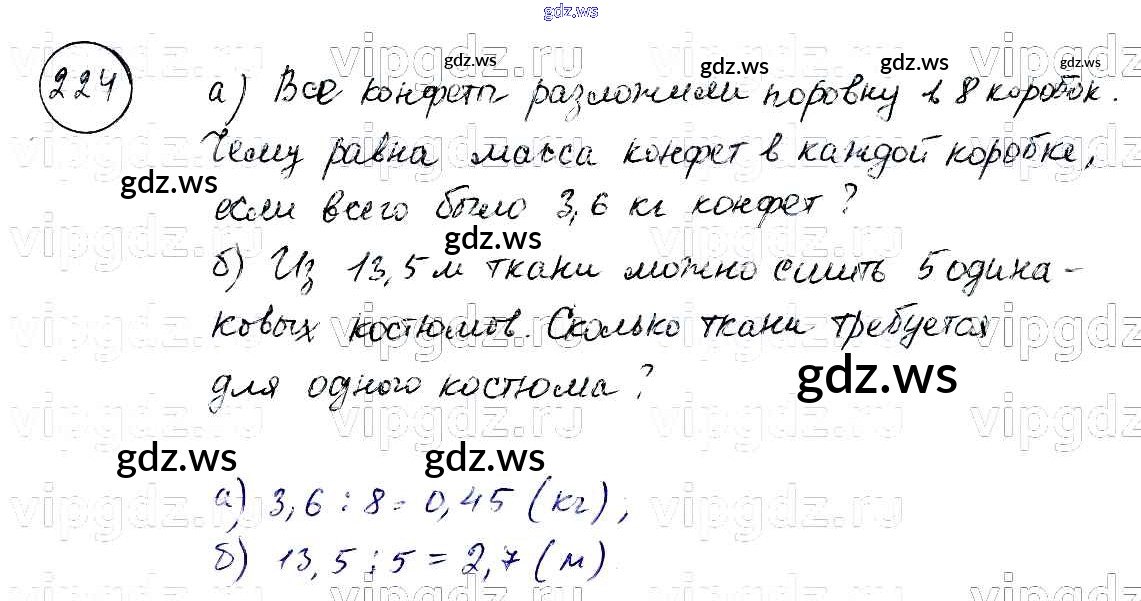 gdz.ws
224
а) Все конфеты разложили поровну в 8 коробок.
Чему равна масса конфет в каждой коробке,
если всего было 3,6 кг конфет?
б) Из 13,5 м ткани можно сшить 5 одина-
ковых костюмов. Сколько ткани требуется
для одного костюма?
а) 3,6 : 8 = 0,45 (кг);
б) 13,5 : 5 = 2,7 (м)
gdz.ws
gdz.ws
gdz.ws
gdz.ws
gdz.ws
gdz.ws
gdz.ws
gdz.ws
gdz.ws
vipgdz.ru